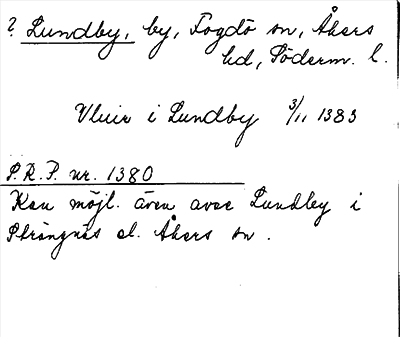 ? Lundby, by, Fogdö sn, Åkers
hd, Söderm. l.
i Lundby 3/11 1383
P.R.P. nr. 1380
Kan möjl. även avse Lundby i
Strängnäs el. Åkers sn.